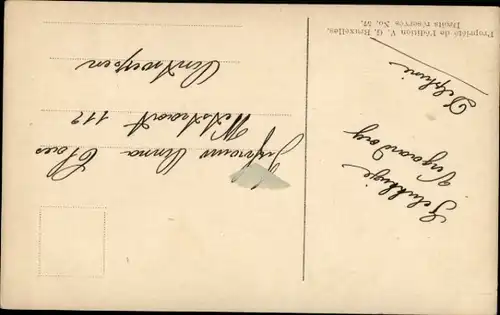 Propriété de l'édition V. G. Bruxelles.
Droits réservés No. 57.
Gelukkige
Delphine
Juffrouw Anna Claes
Wetstraat 112
Antwerpen